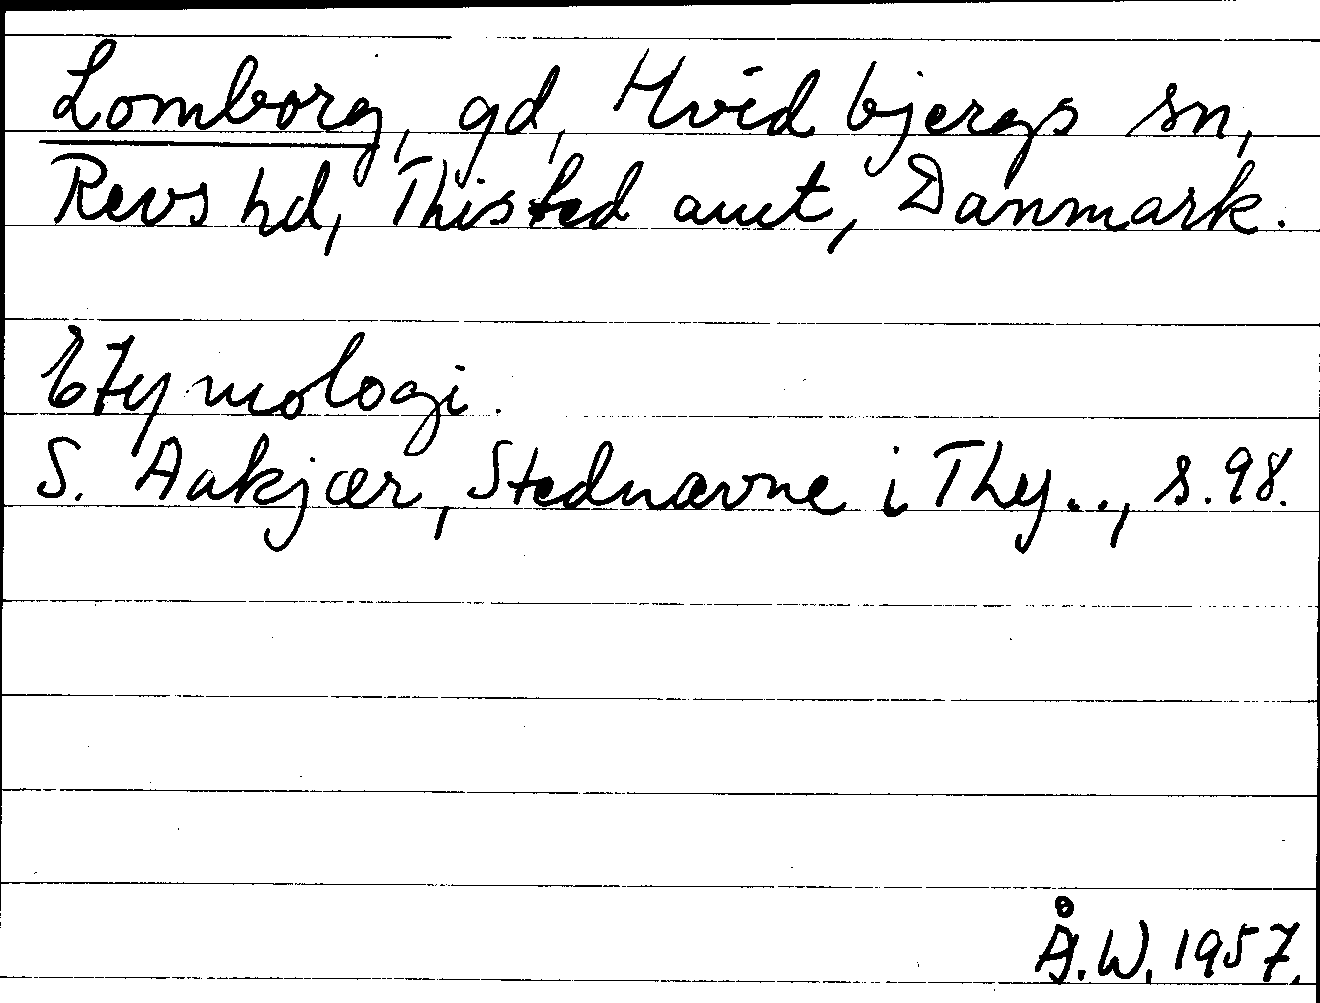 Lomborg, gd, Hvidbjergs sn,
Revs hd, Thisted amt, Danmark.
Etymologi.
S. Aakjær, Stednavne i Thy.., s.98.
Å.W. 1957.